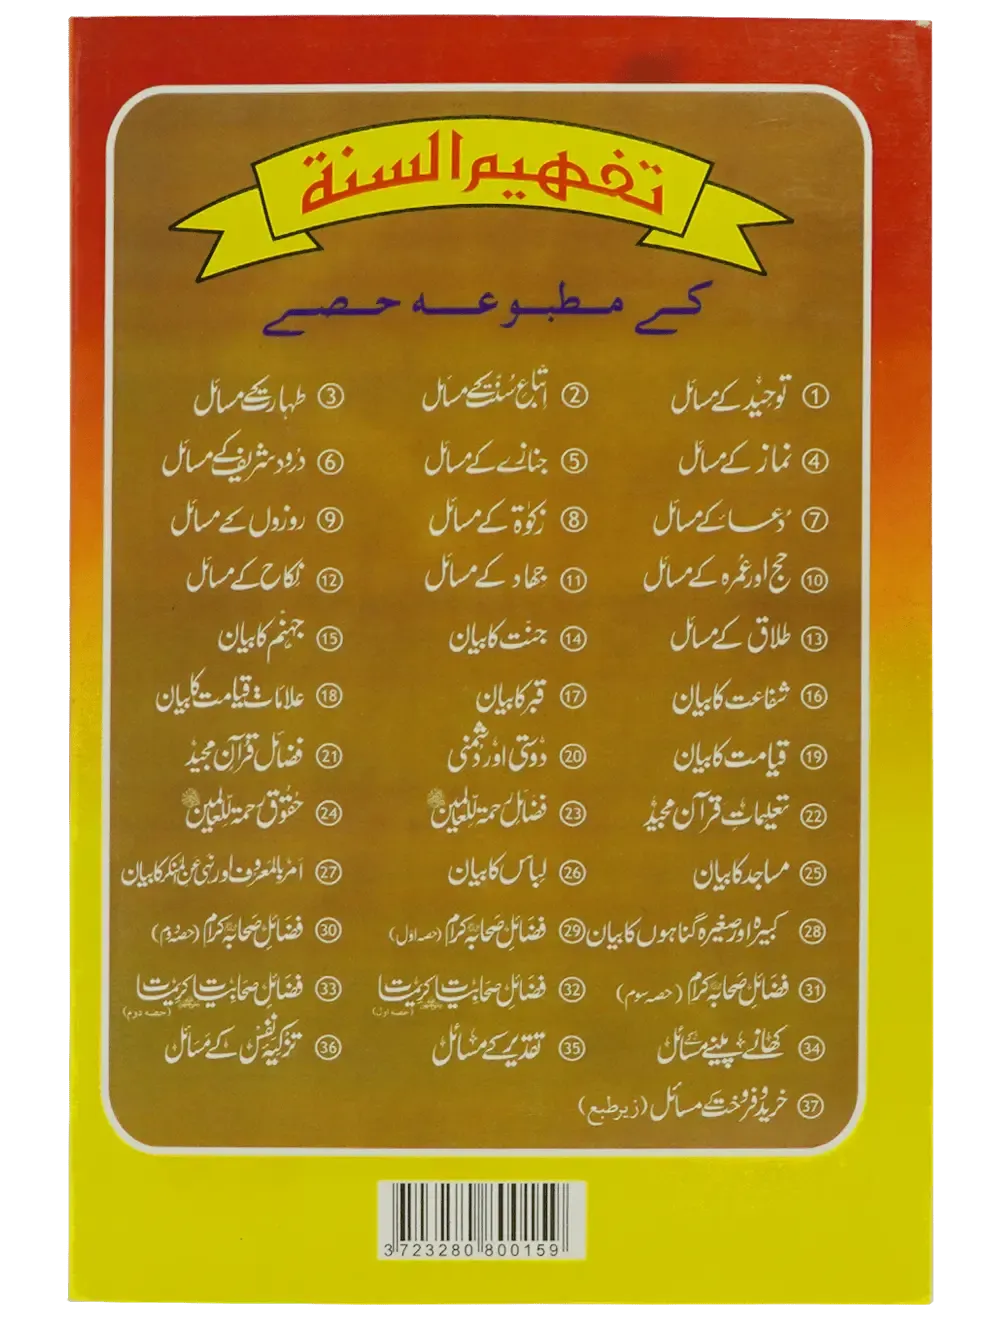 تفہیم السنة
کے مطبوعہ حصے
① توحید کے مسائل ② اتباع سُنت کے مسائل ③ طہارت کے مسائل
④ نماز کے مسائل ⑤ جنازے کے مسائل ⑥ درود شریف کے مسائل
⑦ دُعا کے مسائل ⑧ زکوٰۃ کے مسائل ⑨ روزوں کے مسائل
⑩ حج اور عُمرہ کے مسائل ⑪ جہاد کے مسائل ⑫ نکاح کے مسائل
⑬ طلاق کے مسائل ⑭ جنت کا بیان ⑮ جہنم کا بیان
⑯ شفاعت کا بیان ⑰ قبر کا بیان ⑱ علاماتِ قیامت کا بیان
⑲ قیامت کا بیان ⑳ دوستی اور دشمنی ㉑ فضائل قرآن مجید
㉒ تعلیماتِ قرآن مجید ㉓ فضائل رحمۃ للعالمین ﷺ ㉔ حقوق رحمۃ للعالمین ﷺ
㉕ مساجد کا بیان ㉖ لباس کا بیان ㉗ امر بالمعروف اور نہی عن المنکر کا بیان
㉘ کبیرہ اور صغیرہ گناہوں کا بیان ㉙ فضائلِ صحابہ کرام (حصہ اول) ㉚ فضائلِ صحابہ کرام (حصہ دوم)
㉛ فضائلِ صحابہ کرام (حصہ سوم) ㉜ فضائلِ صحابیات کریمات (حصہ اول) ㉝ فضائلِ صحابیات کریمات (حصہ دوم)
㉞ کھانے پینے کے مسائل ㉟ تقدیر کے مسائل ㊱ تزکیہ نفس کے مسائل
㊲ خرید و فروخت کے مسائل (زیر طبع)
3 723280 800159